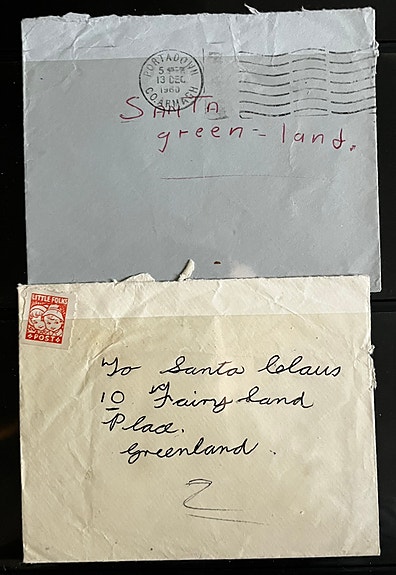 PORTADOWN
5 - PM
13 DEC
1960
CO. ARMAGH
SANTA
green - land.
LITTLE FOLKS
POST
To Santa Claus
10 Fairy Land
Place.
Greenland.